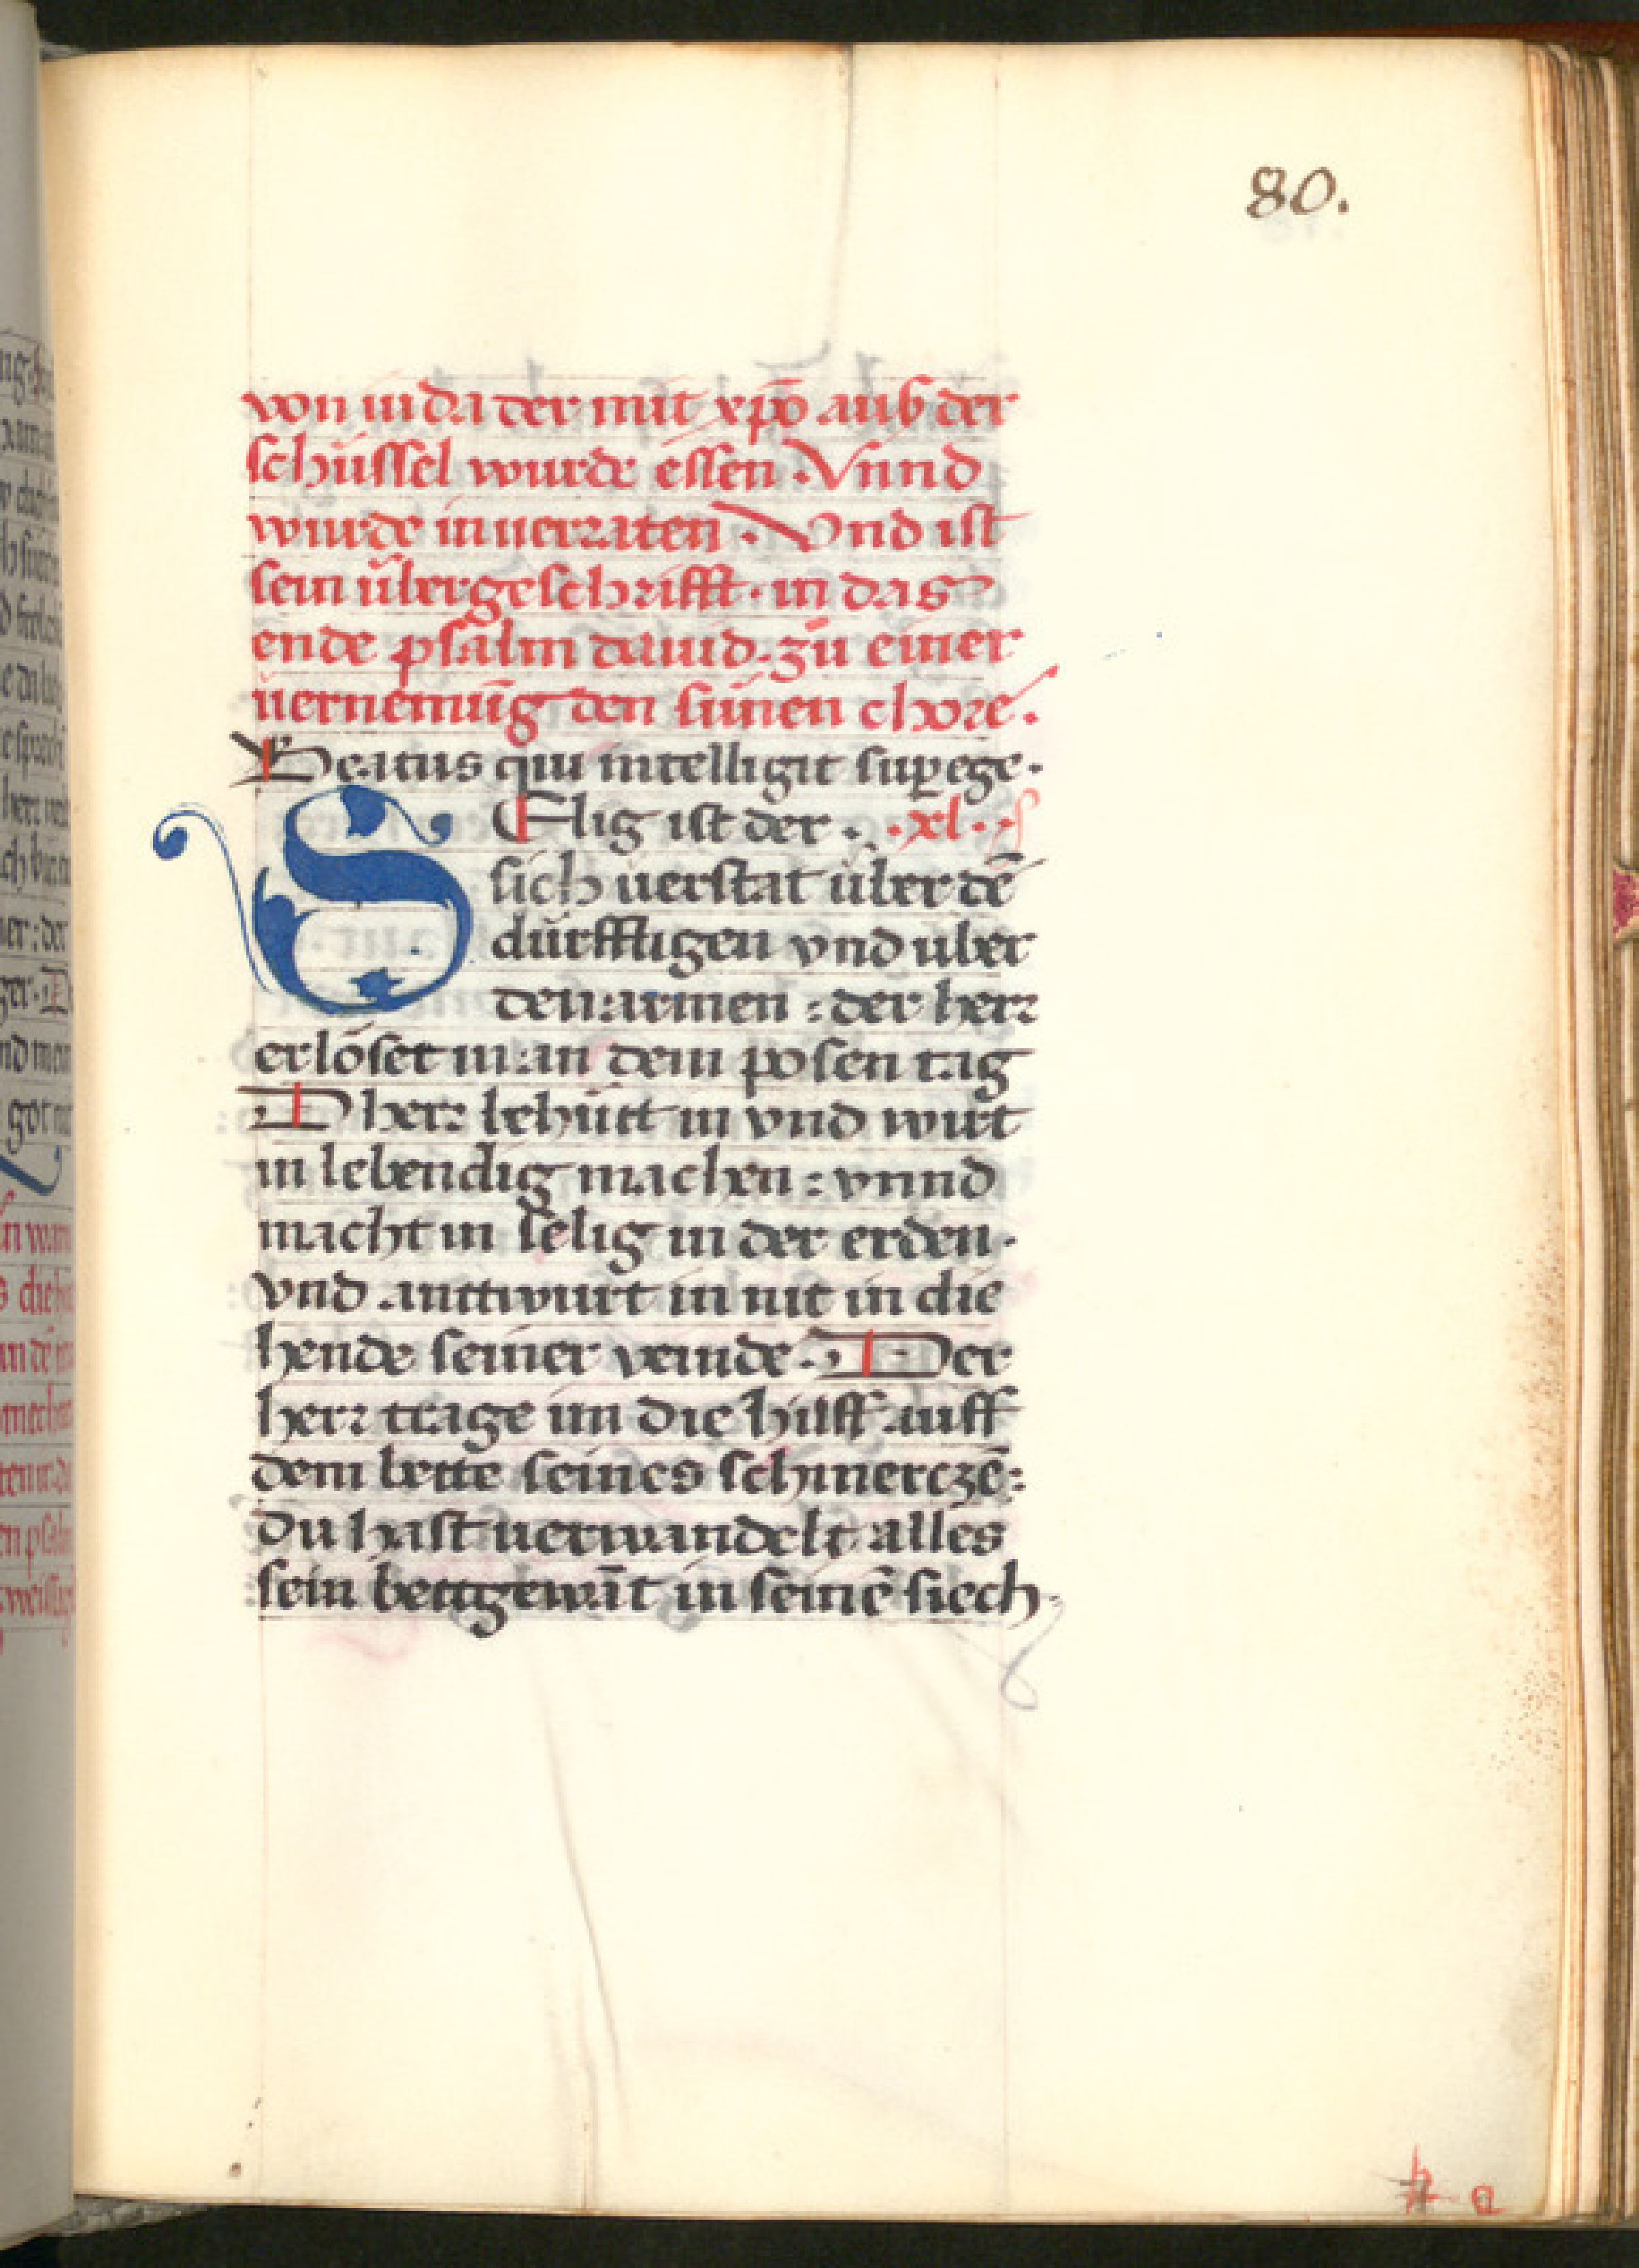 80.
von iuda der mit xp̄o auß der
schüssel wurde essen · Vnnd
wurde in uerraten · Vnd ist
sein übergeschrifft · in das
ende psalm dauid · zů einer
uernemūg den sünen chore ·
Beatus qui intelligit suꝑ ege ·
SElig ist der · · xl · ps
sich uerstat über dē
dürfftigen vnd uber
den armen : der herr
erlöset in an dem posen tag
D herr behütt in vnd wirt
in lebendig machen : vnnd
macht in selig in der erden ·
vnd anttwurt in nit in die
hende seiner veinde · Der
herr trage im die hilff auff
dem bette seines schmerczē :
Du hast uerwandelt alles
sein bettgewāt in seinē siech
h a